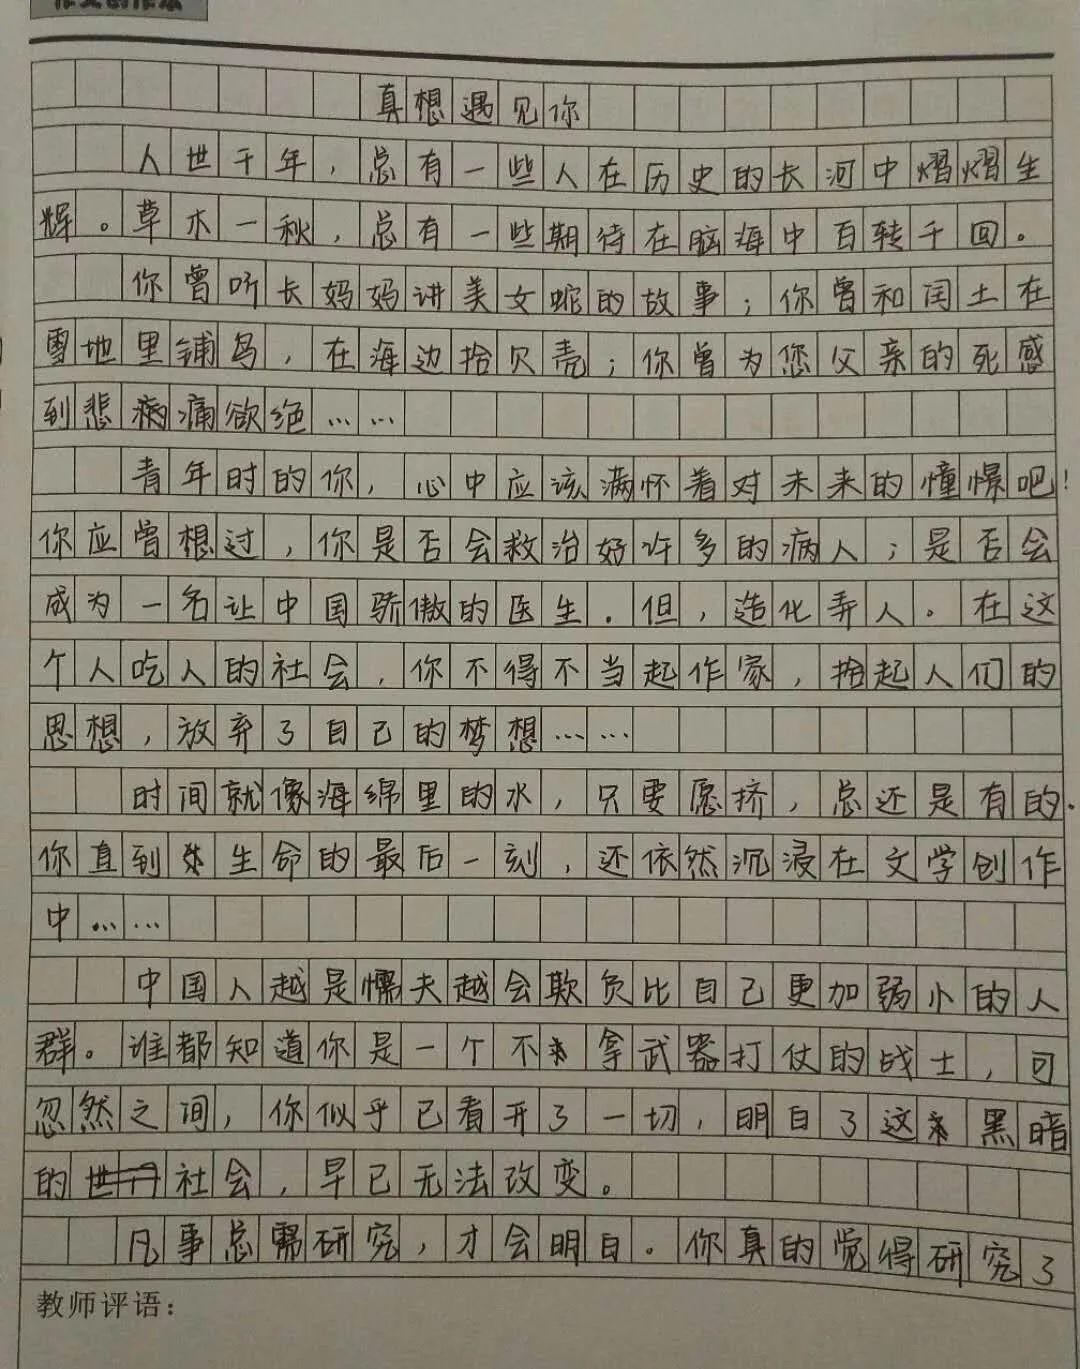 真想遇见你
人世千年，总有一些人在历史的长河中熠熠生
辉。草木一秋，总有一些期待在脑海中百转千回。
你曾听长妈妈讲美女蛇的故事；你曾和闰土在
雪地里铺鸟，在海边拾贝壳；你曾为您父亲的死感
到悲病痛欲绝……
青年时的你，心中应该满怀着对未来的憧憬吧！
你应曾想过，你是否会救治好许多的病人；是否会
成为一名让中国骄傲的医生。但，造化弄人。在这
个人吃人的社会，你不得不当起作家，拾起人们的
思想，放弃了自己的梦想……
时间就像海绵里的水，只要愿挤，总还是有的.
你直到生命的最后一刻，还依然沉浸在文学创作
中……
中国人越是懦夫越会欺负比自己更加弱小的人
群。谁都知道你是一个不拿武器打仗的战士，可
忽然之间，你似乎已看开了一切，明白了这黑暗
的社会，早已无法改变。
凡事总需研究，才会明白。你真的觉得研究了
教师评语：